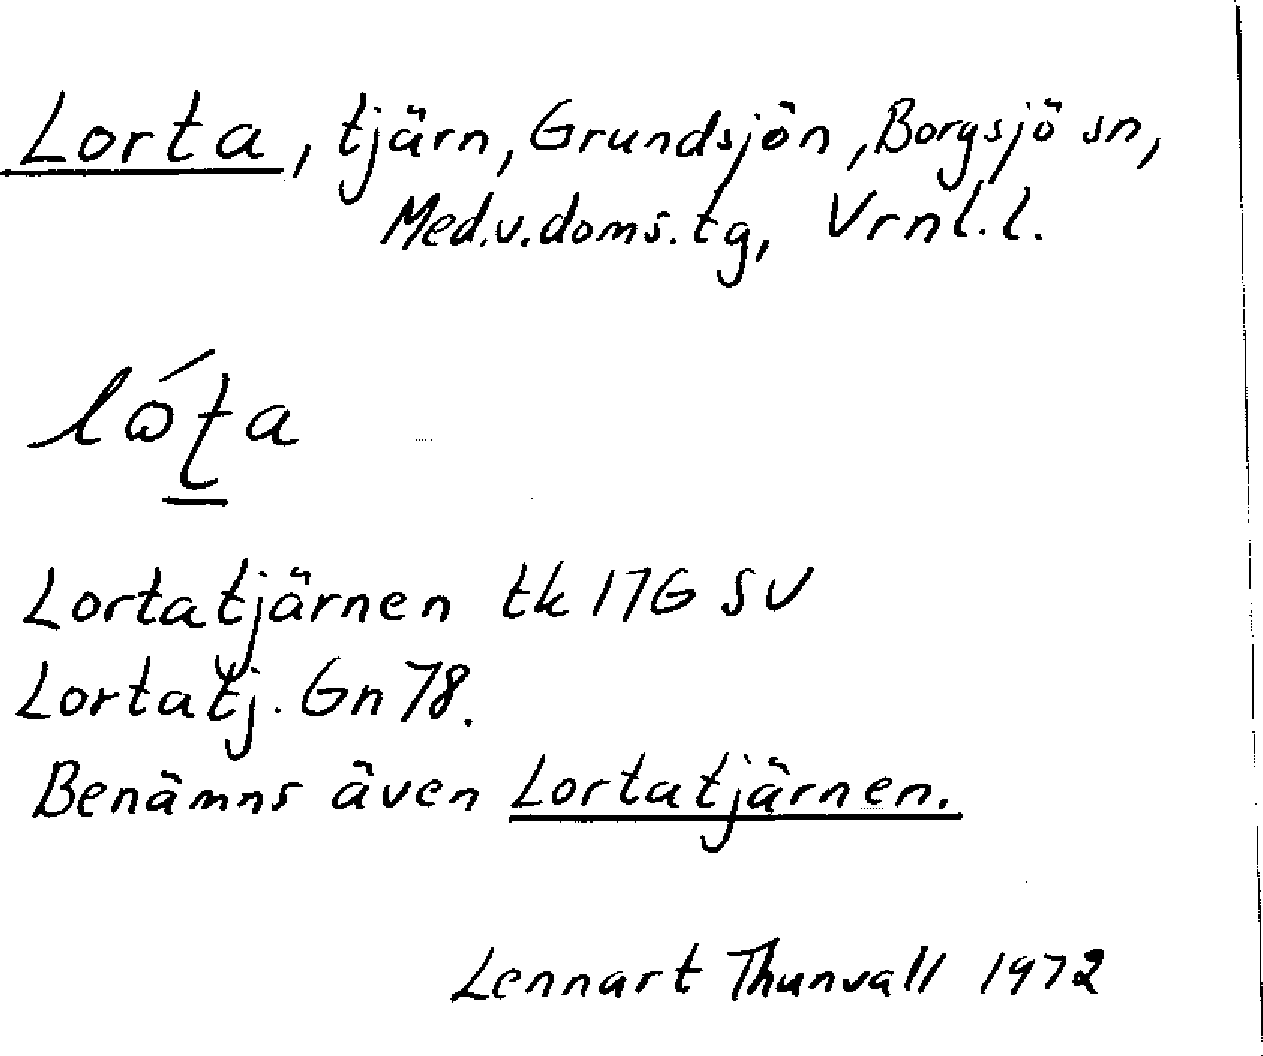 Lorta, tjärn, Grundsjön, Borgsjö sn,
Med.v.doms.tg, Vrnl.l.
Lortatjärnen tk 17G SV
Lortatj. Gn 78.
Benämns även Lortatjärnen.
Lennart Thunvall 1972